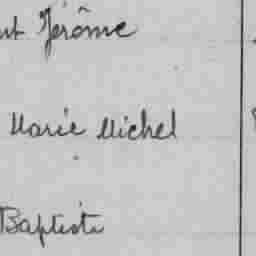 Jérôme
Marie Michel
Baptiste